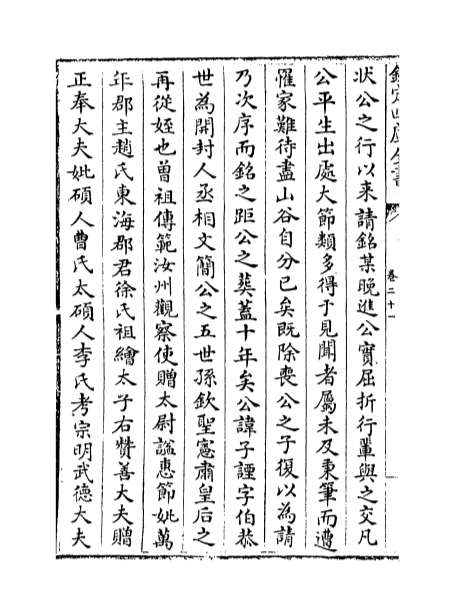 欽定四庫全書
卷二十一
狀公之行以来請銘某晚進公實屈折行輩與之交凡
公平生出處大節類多得于見聞者屬未及秉筆而遭
罹家難待盡山谷自分已矣既除喪公之子復以為請
乃次序而銘之距公之葬蓋十年矣公諱子諲字伯恭
世為開封人丞相文簡公之五世孫欽聖憲肅皇后之
再從姪也曾祖傳範汝州觀察使贈太尉諡惠節妣萬
年郡主趙氏東海郡君徐氏祖繪太子右贊善大夫贈
正奉大夫妣碩人曹氏太碩人李氏考宗明武德大夫